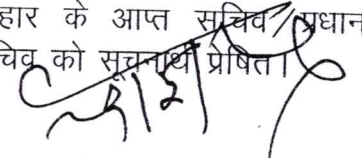 हार के आप्त सचिव/प्रधान
चिव को सूचनार्थ प्रेषित।